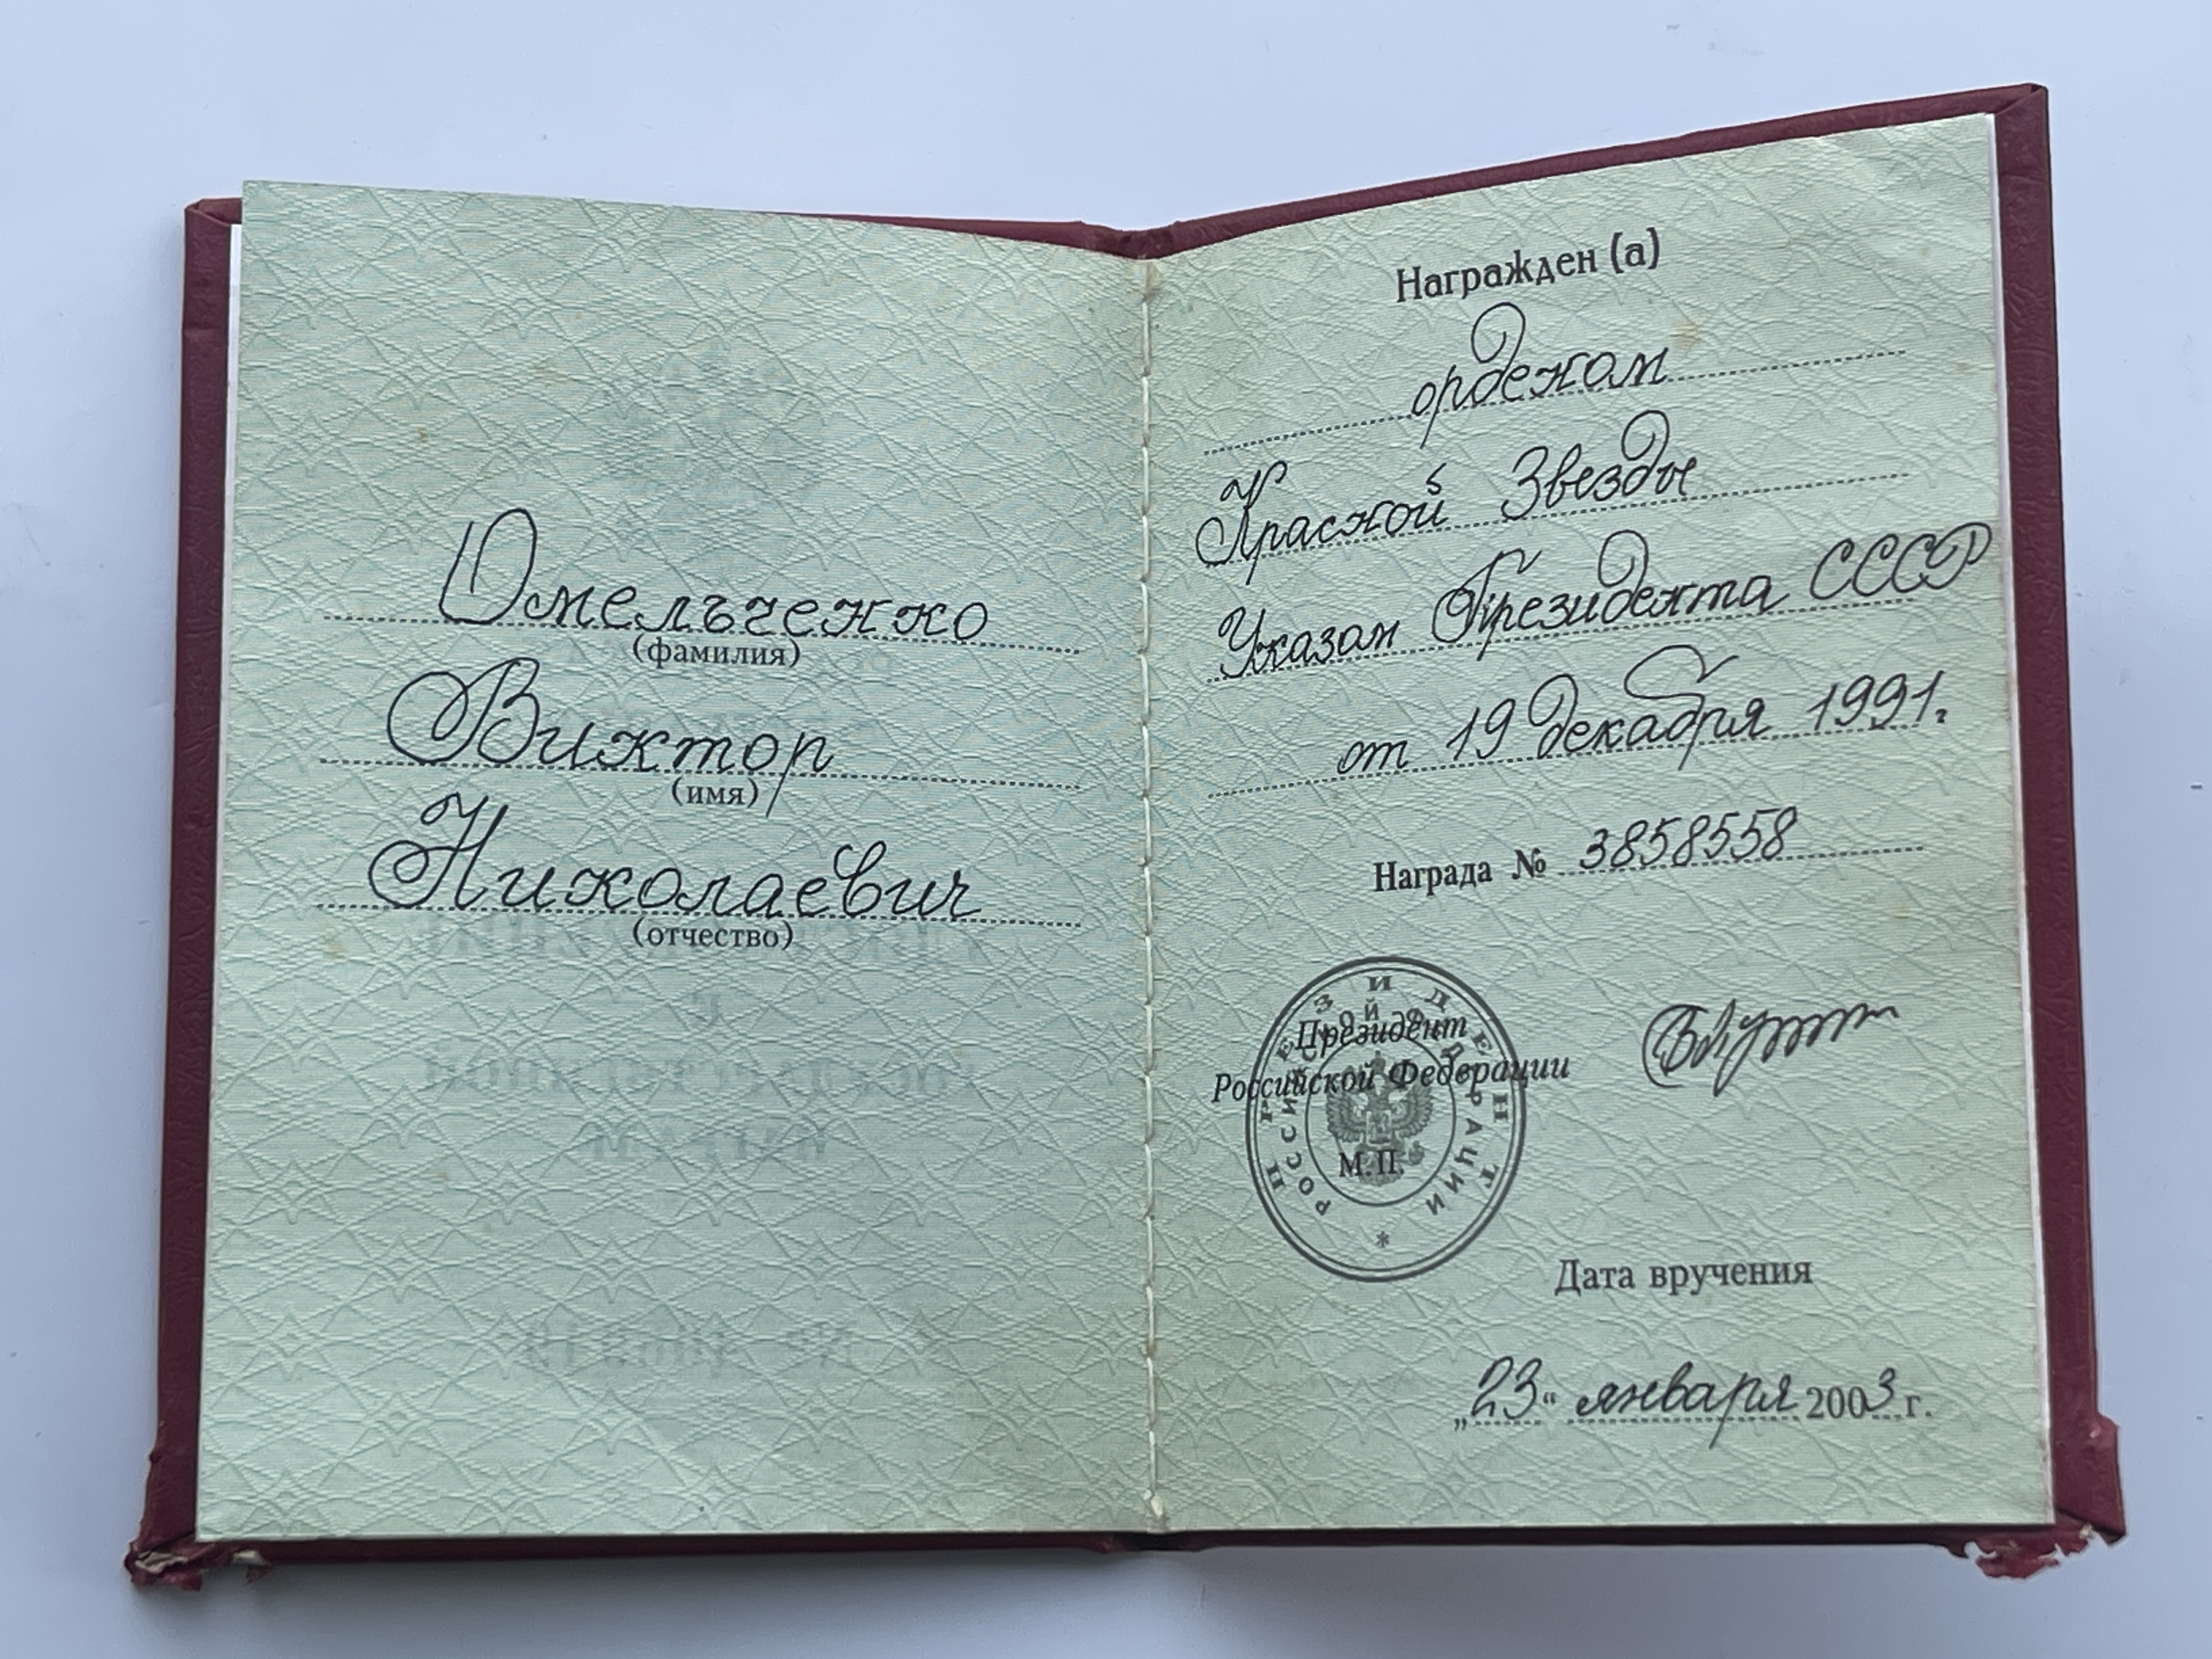 Омельченко
(фамилия)
Виктор
(имя)
Николаевич
(отчество)
Награжден (а)
орденом
Красной Звезды
Указом Президента СССР
от 19 декабря 1991г.
Награда № 3858558
ПРЕЗИДЕНТ
РОССИЙСКОЙ ФЕДЕРАЦИИ
*
Президент
Российской Федерации
М.П.
Дата вручения
„23“ января 2003 г.